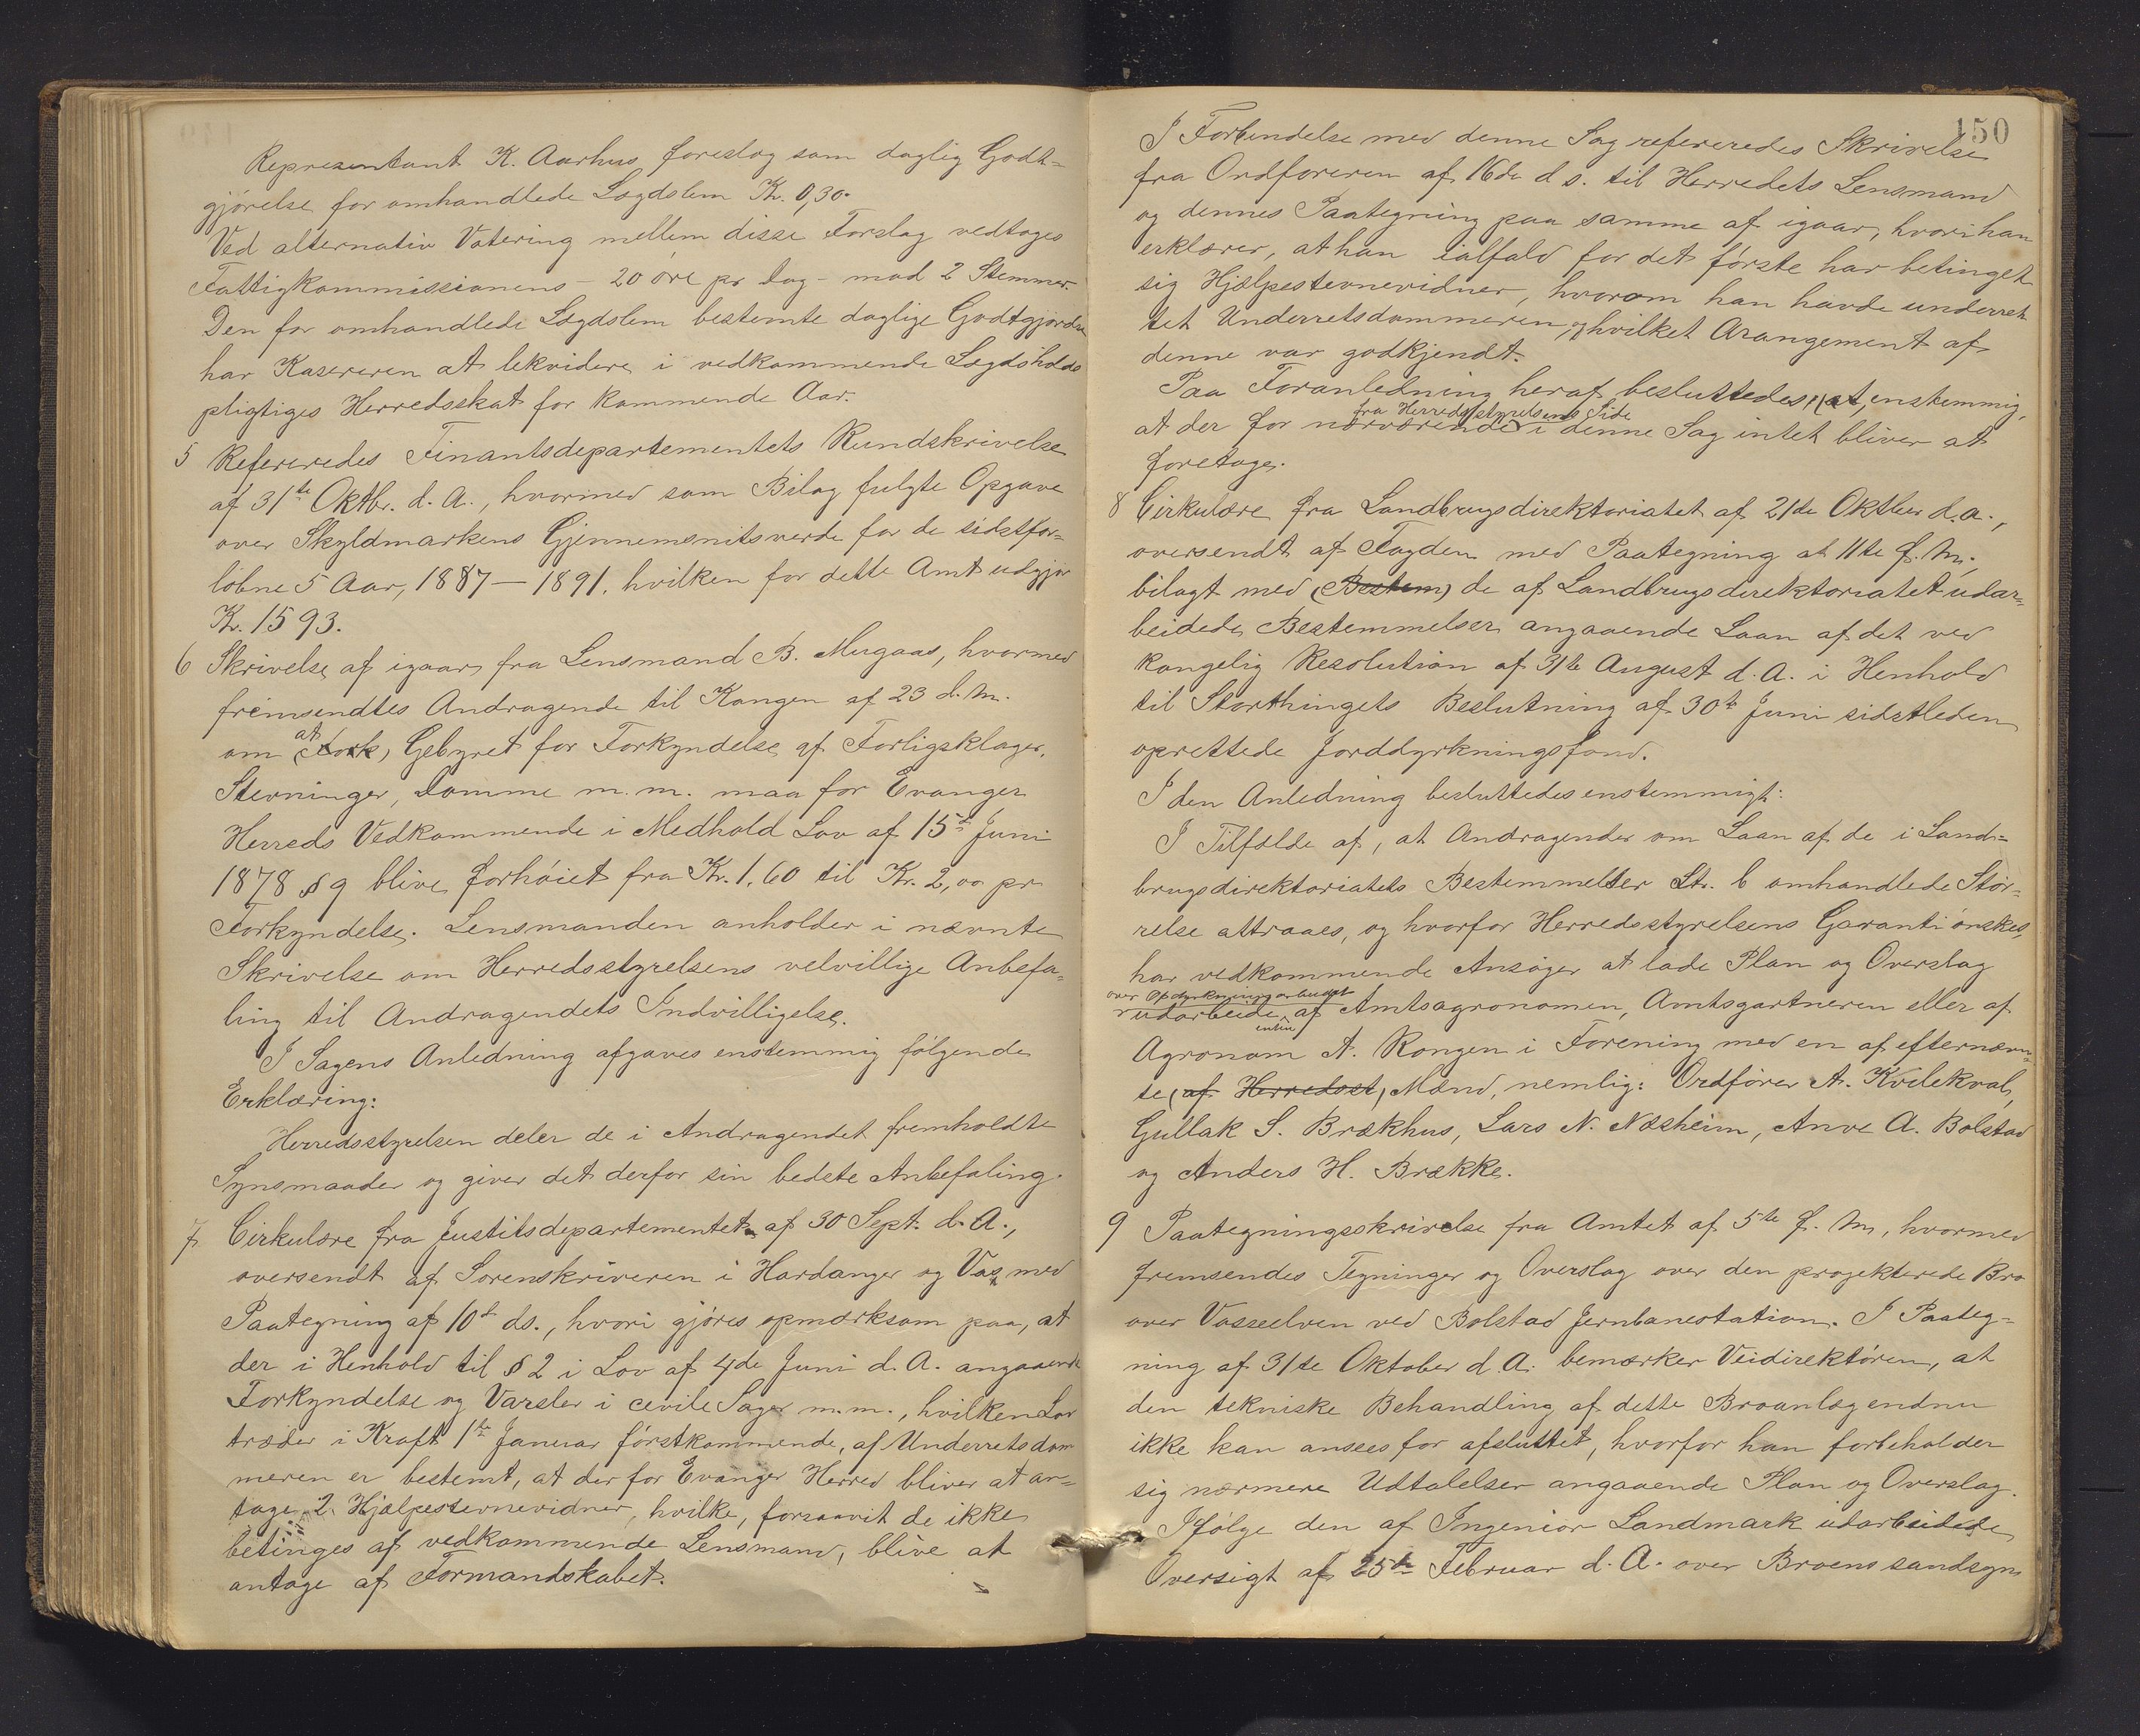 Representant K. Aarhus foreslog som daglig Godt-
gjörelse for omhandlede Lægdslem Kr. 0,30.
Ved alternativ Votering mellem disse Forslag vedtoges
Fattigkommissionens - 20 öre pr Dag - mod 2 Stemmer.
Den for omhandlede Lægdslem bestemte daglige Godtgjörelse
har Kasereren at lekvidere i vedkommende Lægdsholds
pligtiges Herredsskat for kommende Aar.
5 Refereredes Finantsdepartementets Rundskrivelse
af 31te Oktbr. d. A., hvormed som Bilag fulgte Opgave
over Skyldmarkens Gjennemsnitsverde for de sidstfor-
löbne 5 Aar, 1887-1891, hvilken for dette Amt udgjör
Kr. 1593.
6 Skrivelse af igaar fra Lensmand B. Mugaas, hvormed
fremsendtes Andragende til Kongen af 23 d. M.
om at (Fork) Gebyret for Forkyndelse af Forligsklager,
Stevninger, Domme m. m. maa for Evanger
Herreds Vedkommende i Medhold Lov af 15de Juni
1878 § 9 blive forhöiet fra Kr. 1,60 til Kr. 2,00 pr
Forkyndelse. Lensmanden anholder i nævnte
Skrivelse om Herredsstyrelsens velvillige Anbefa-
ling til Andragendets Indvilligelse.
I Sagens Anledning afgaves enstemmig fölgende
Erklæring:
Herredsstyrelsen deler de i Andragendet fremholdte
Synsmaader og giver det derfor sin bedste Anbefaling.
7 Cirkulære fra Justitsdepartementet af 30 Sept. d. A.,
oversendt af Sorenskriveren i Hardanger og Vos med
Paategning af 10de ds., hvori gjöres opmærksom paa, at
der i Henhold til § 2 i Lov af 4de Juni d. A. angaaende
Forkyndelse og Varsler i civile Sager m.m., hvilken Lov
træder i Kraft 1ste Januar förstkommende, af Underretsdom
meren er bestemt, at der for Evanger Herred bliver at an-
tage 2 Hjælpestevnevidner, hvilke, forsaavit de ikke
betinges af vedkommende Lensmand, blive at
antage af Formandskabet.
150
I Forbindelse med denne Sag refereredes Skrivelse
fra Ordföreren af 16de d s. til Herredets Lensmand
og dennes Paategning paa samme af igaar, hvori han
erklærer, at han ialfald for det förste har betinget
sig Hjælpestevnevidner, hvorom han havde underret-
tet Underretsdommeren, og hvilket Arangement af
denne var godkjendt.
Paa Foranledning heraf besluttedes (at) enstemmig,
fra Herredsstyrelsens Side
at der for nærværende i denne Sag intet bliver at
foretage.
8 Cirkulære fra Landbrugsdirektoriatet af 21de Oktber d.a.,
oversendt af Fogden med Paategning at 11te f. M.,
bilagt med (Bestem) de af Landbrugsdirektoriatet udar-
beidede Bestemmelser angaaende Laan af det ved
kongelig Resolution af 31te August d. A. i Henhold
til Storthingets Beslutning af 30te Juni sidstleden
oprettede Jorddyrkningsfond.
I den Anledning besluttedes enstemmigt:
I Tilfælde af, at Andragender om Laan af de i Land-
brugsdirektoriatets Bestemmelser Litr. b omhandlede Stör-
relse attraaes, og hvorfor Herredsstyrelsens Garanti önskes,
har vedkommende Ansöger at lade Plan og Overslag
over Opdyrkningsarbeidet
udarbeide enten af Amtsagronomen, Amtsgartneren eller af
Agronom A. Rongen i Forening med en af efternævn-
te (af Herredset) Mænd, nemlig: Ordförer A. Kvilekval,
Gullak S. Brækhus, Lars N. Næsheim, Anve A. Bolstad
og Anders H. Brække.
9 Paategningsskrivelse fra Amtet af 5te f. M, hvormed
fremsendes Tegninger og Overslag over den projekterede Bro
over Vosseelven ved Bolstad Jernbanestation. I Paateg-
ning af 31te Oktober d. A. bemærker Veidirektören, at
den tekniske Behandling af dette Broanlæg endnu
ikke kan ansees for afsluttet, hvorfor han forbeholder
sig nærmere Udtalelser angaaende Plan og Overslag.
Ifölge den af Ingeniör Landmark udarbeidede
Oversigt af 25de Februar d. A. over Broens sandsyn